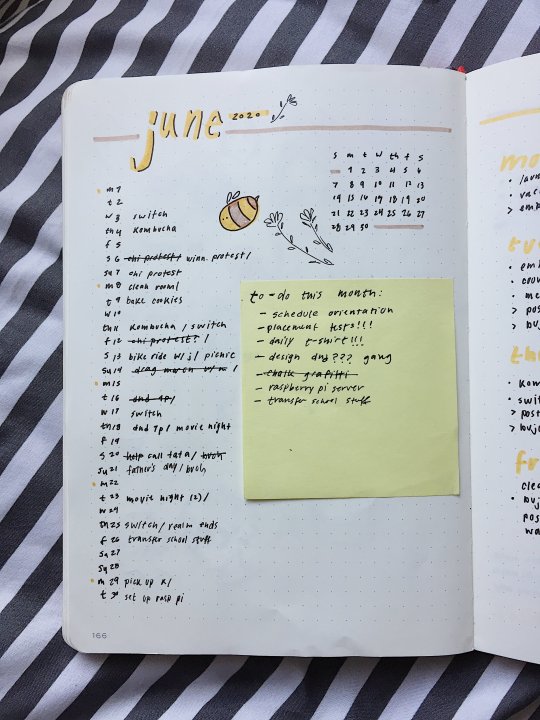 june 2020
S m t W th f S
1 2 3 4 5 6
7 8 9 10 11 12 13
14 15 16 17 18 19 20
21 22 23 24 25 26 27
28 29 30
m 1
t 2
w 3 switch
th 4 Kombucha
f 5
S 6 chi protest / winn. protest /
Su 7 chi protest
m 8 clean room!
t 9 bake cookies
w 10
th 11 Kombucha / switch
f 12 chi protest? /
S 13 bike ride w/ j / picnic
Su 14 drag march w/
m 15
t 16 dnd 7p /
w 17 switch
th 18 dnd 7p / movie night
f 19
S 20 help call tata / bvoh
Su 21 father's day / bvoh
m 22
t 23 movie night (2) /
w 24
th 25 switch / realm ends
f 26 transfer school stuff
Sa 27
Su 28
m 29 pick up k /
t 30 set up rasp pi
to-do this month:
- schedule orientation
- placement tests!!!
- daily t-shirt!!!
- design dnd??? gang
- chalk graffiti
- raspberry pi server
- transfer school stuff
166
mo
vac
> emp
tu
emp
crow
me
> pos
> buj
th
Kom
swit
> post
> bujo
fr
clea
buj
pos
wa